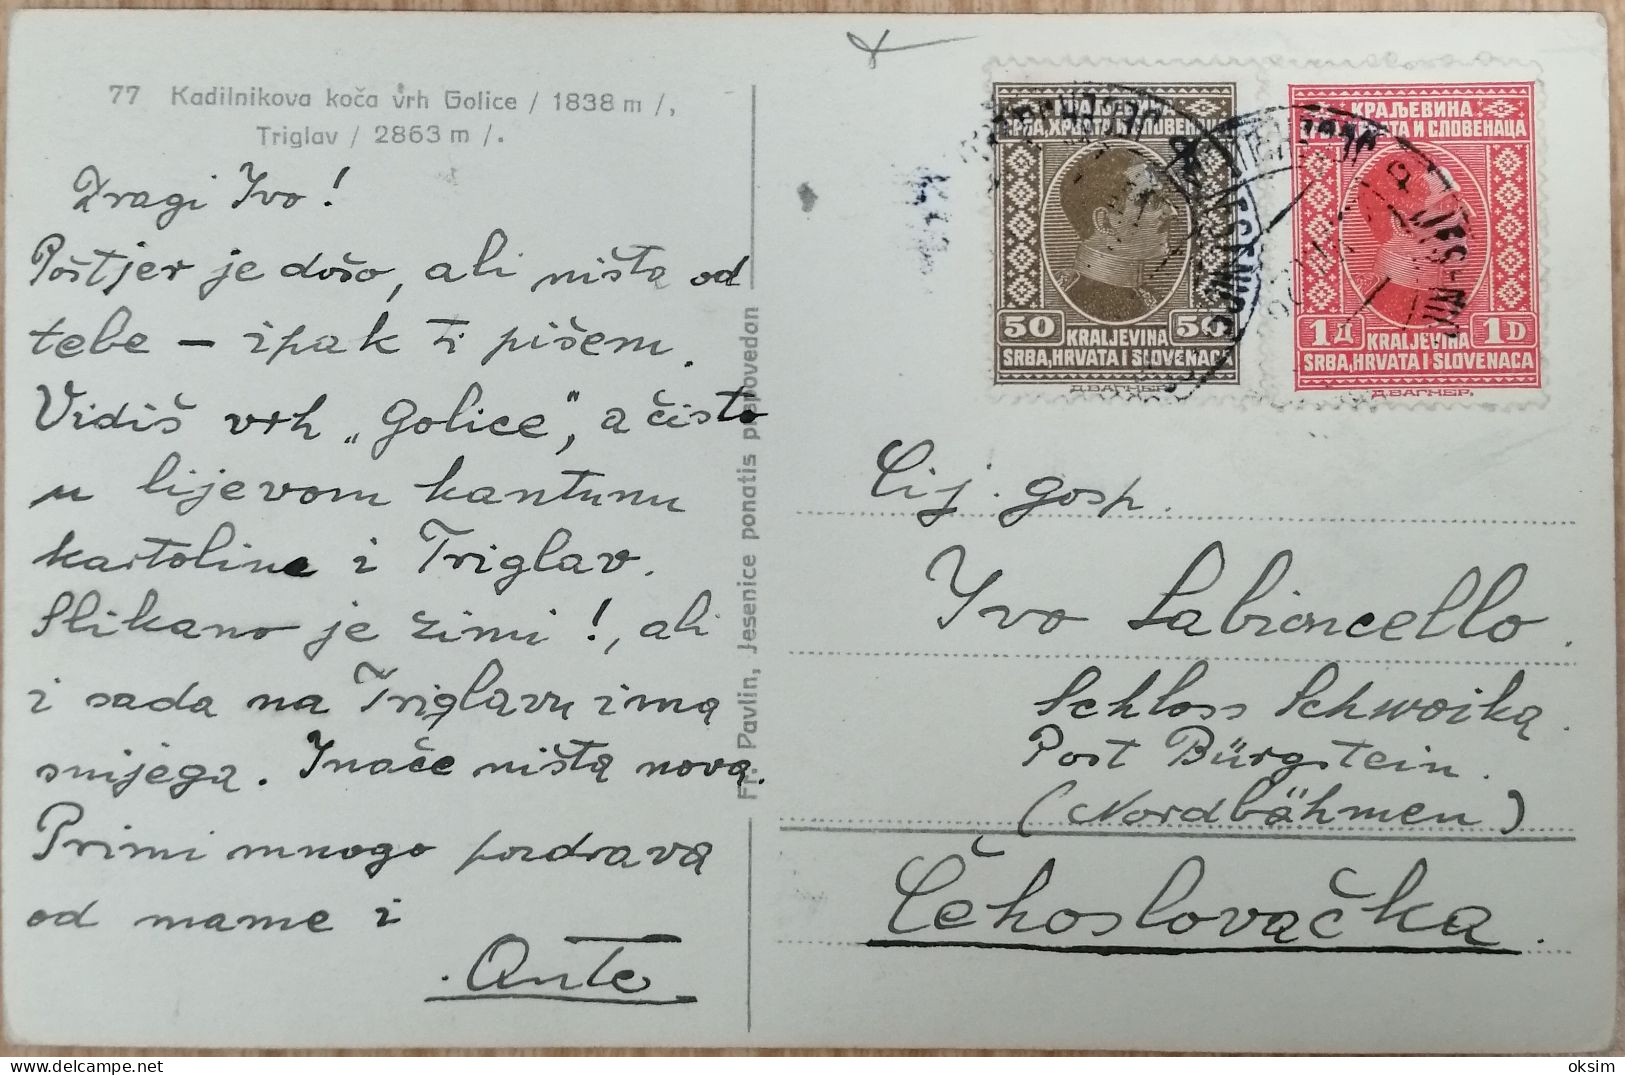 77 Kadilnikova koča vrh Golice / 1838 m /,
Triglav / 2863 m /.
Dragi Ivo!
Poštjer je došo, ali ništa od
tebe – ipak ti pišem.
Vidiš vrh „Golice", a čisto
u lijevom kantunu
kartoline i Triglav.
Slikano je zimi!, ali
i sada na Triglavu ima
snijega. Inače ništa nova.
Primi mnogo pozdrava
od mame i
Ante
Fr. Pavlin, Jesenice ponatis prepovedan
КРАЉЕВИНА
СРБА, ХРВАТА И СЛОВЕНАЦА
50 50
KRALJEVINA
SRBA, HRVATA I SLOVENACA
Д. ВАГНЕР.
КРАЉЕВИНА
СРБА, ХРВАТА И СЛОВЕНАЦА
1Д 1D
KRALJEVINA
SRBA, HRVATA I SLOVENACA
Д. ВАГНЕР.
Cij. gosp.
Ivo Labioncello.
Schloss Schwoika.
Post Bürgstein.
(Nordbähmen)
Čehoslovačka.
oksim